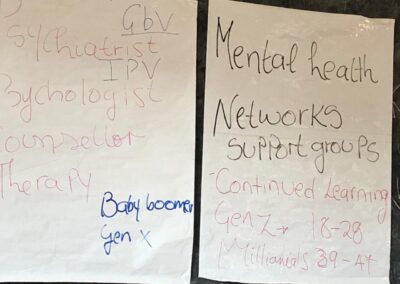 GbV
sychiatrist
IPV
sychologist
ounsellor
Therapy
Baby boomer
Gen X
Mental health
Networks
support groups
- Continued Learning
Gen Z → 18-28
Millianials 39-47